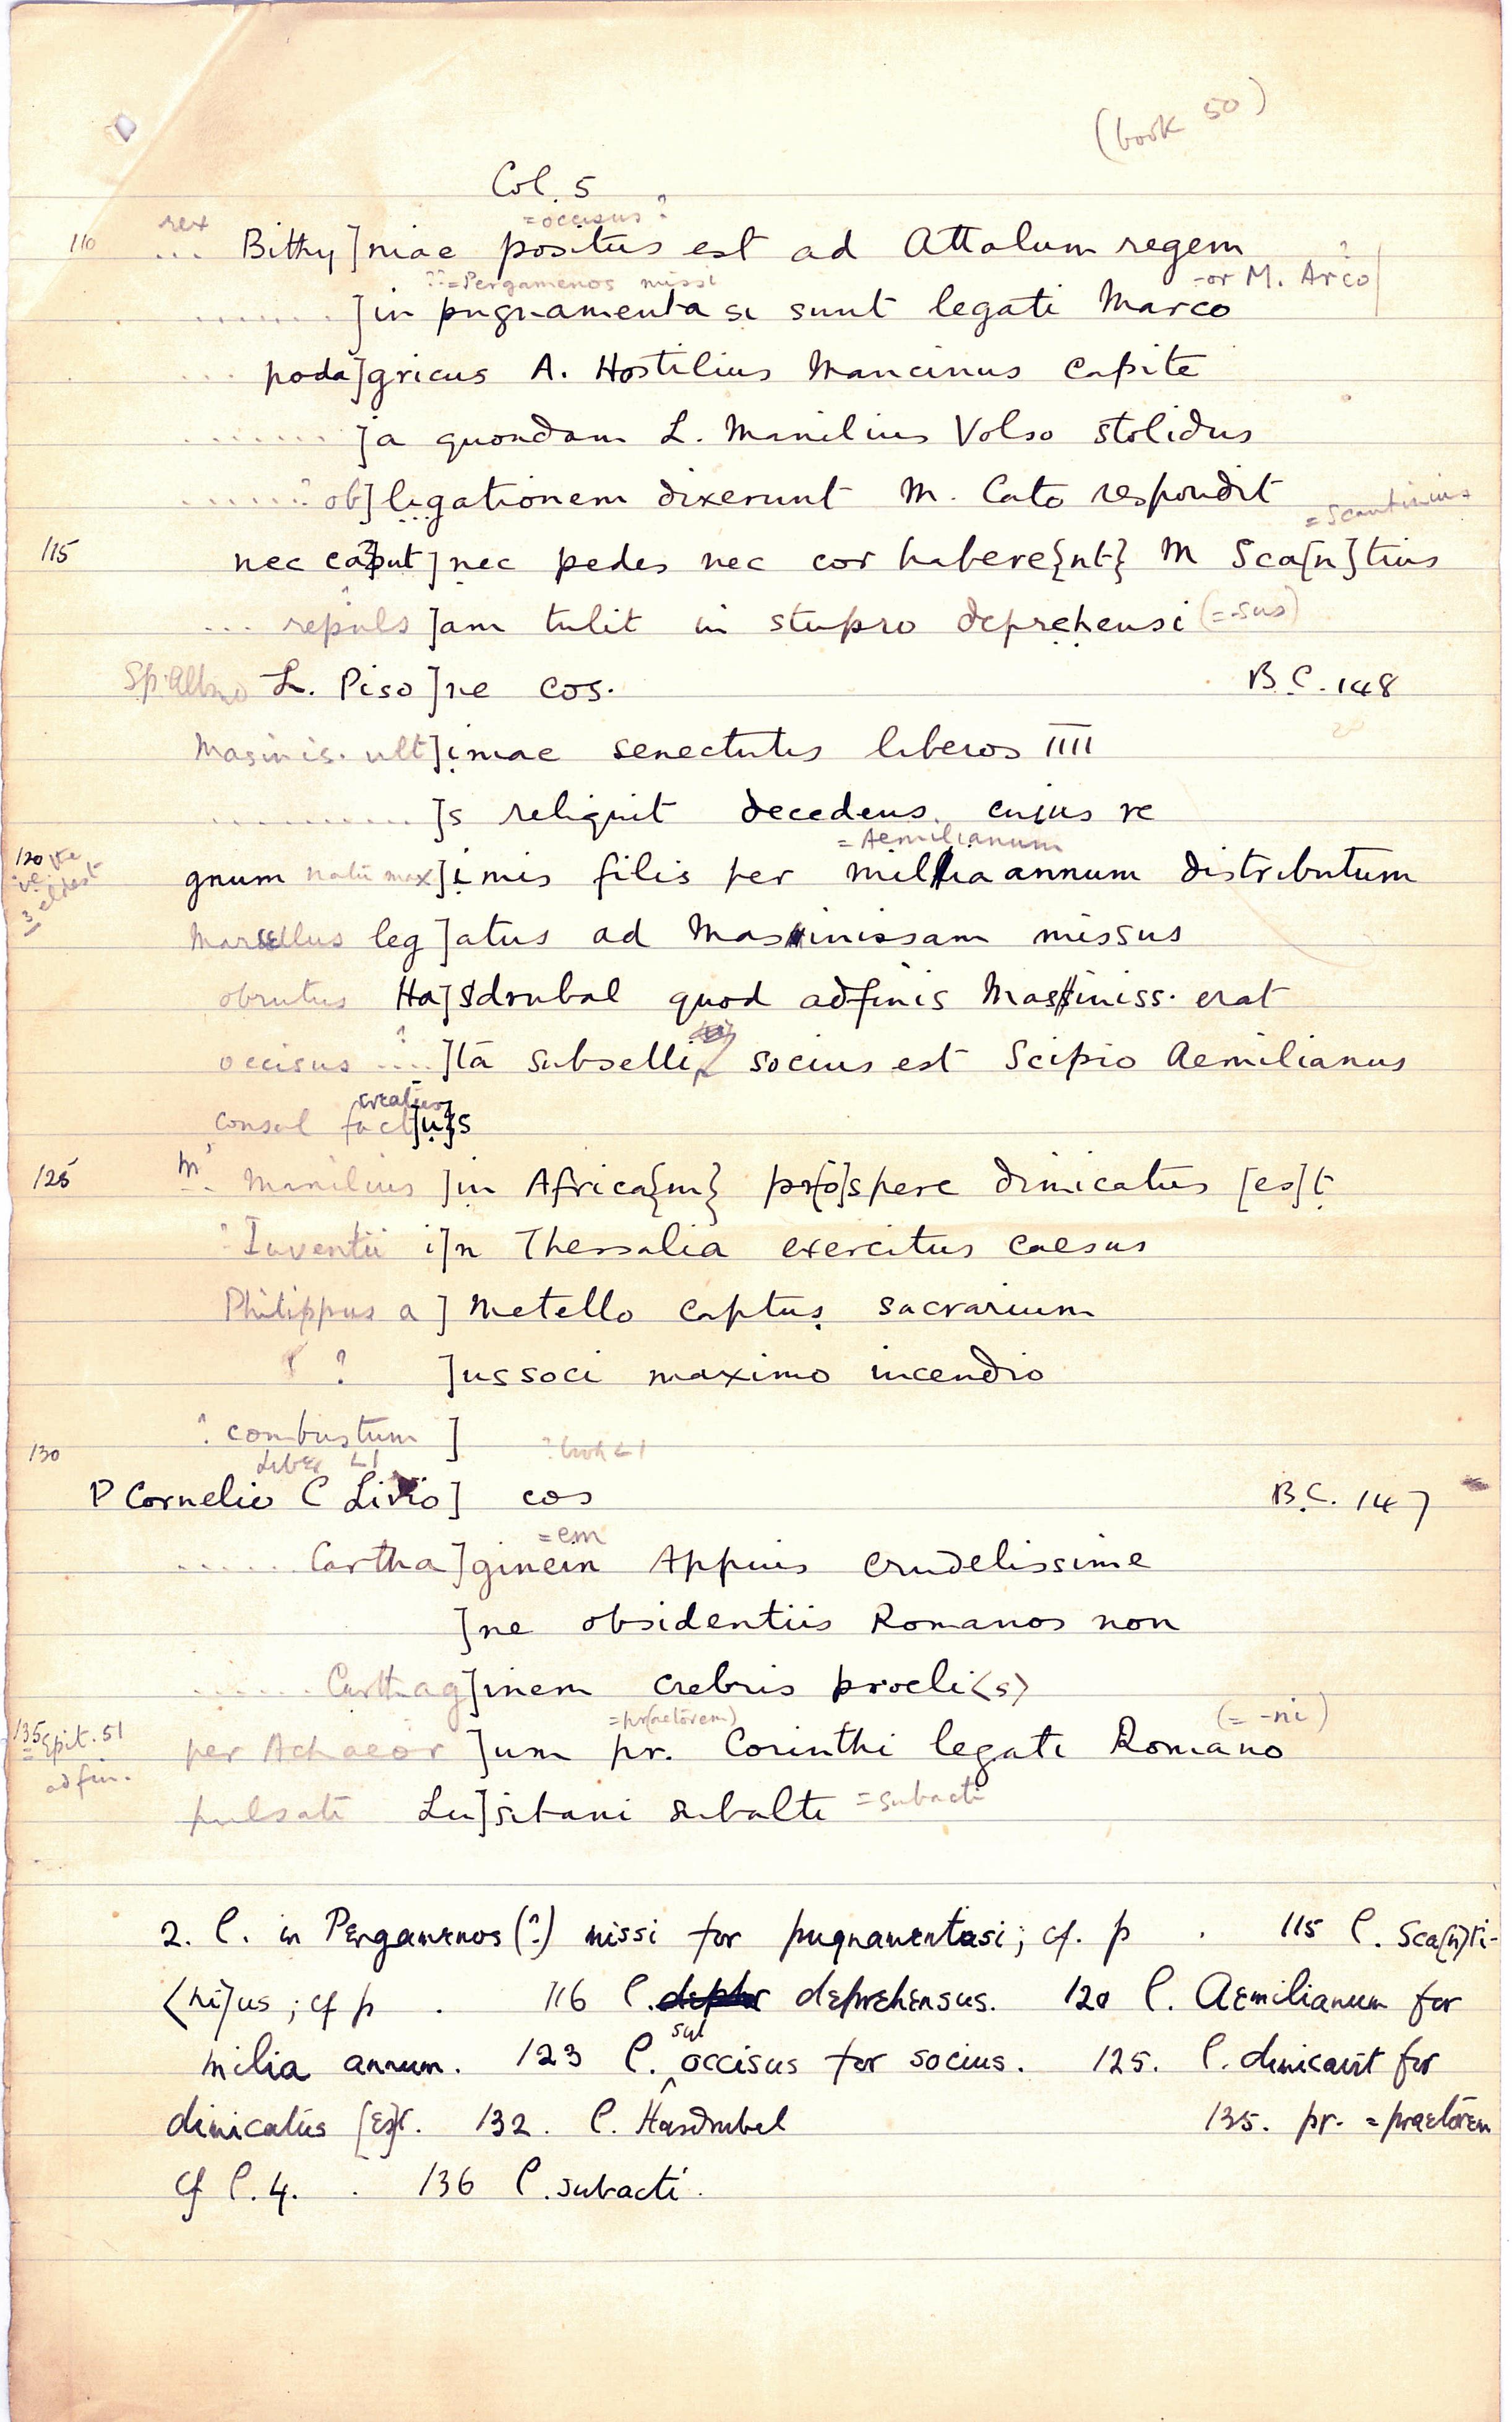 (book 50)
Col. 5
rex = occisus ?
110 ... Bithy]niae positus est ad Attalum regem
??= Pergamenos missi - or M. Arco ?
........ ]in pugnamenta si sunt legati Marco
... poda]gricus A. Hostilius Mancinus capite
........ ]a quondam L. Manilius Volso stolidus
......? ob] ligationem dixerunt M. Cato respondit
= Scantinius
115 nec caput] nec pedes nec cor habere{nt} M Sca[n]tius
... repuls ]am tulit in stupro deprehensi (= -sus)
Sp. Albino L. Piso ]ne cos. B.C. 148
Masinis. ult]imae senectutis liberos IIII
........... ]s reliquit decedens. cuius re
= Aemilianum
120 gnum natu max]imis filis per milia annum distributum
i.e. the 3 eldest
Marcellus leg ]atus ad Masinissam missus
obrutus Ha]sdrubal quod adfinis Masiniss. erat
occisus ?.... ]ta subselli socius est Scipio Aemilianus
creatus
consul fact]u{s
125 M' Manilius ]in Africa{m} pr[o]spere dimicatus [es]t
? Iuventii i]n Thessalia exercitus caesus
Philippus a ] Metello captus sacrarium
? ]ussoci maximo incendio
? combustum ]
130 Liber LI ? book LI
P Cornelio C Livio] cos B.C. 147
= em
...... Cartha]ginein Appius crudelissime
]ne obsidentiis Romanos non
...... Carthag]inem crebris proeli<s>
= pr(aetorem) (= -ni)
135 per Achaeor ]um pr. Corinthi legati Romano
= Epit. 51 ad fin.
pulsati Lu]sitani subalti = subacti
2. l. in Pergamenos (?) missi for pugnamentasi; cf. p . 115 l. Sca[n]ti-
<ni>us; cf p . 116 l. deprehensus. 120 l. Aemilianum for
milia annum. 123 l. occisus for socius. 125. l. dimicavit for
dimicatus [es]t. 132. l. Hasdrubal 135. pr. = praetorem
cf l. 4. . 136 l. subacti.